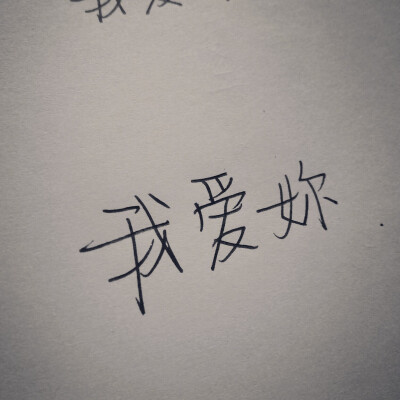 我爱妳